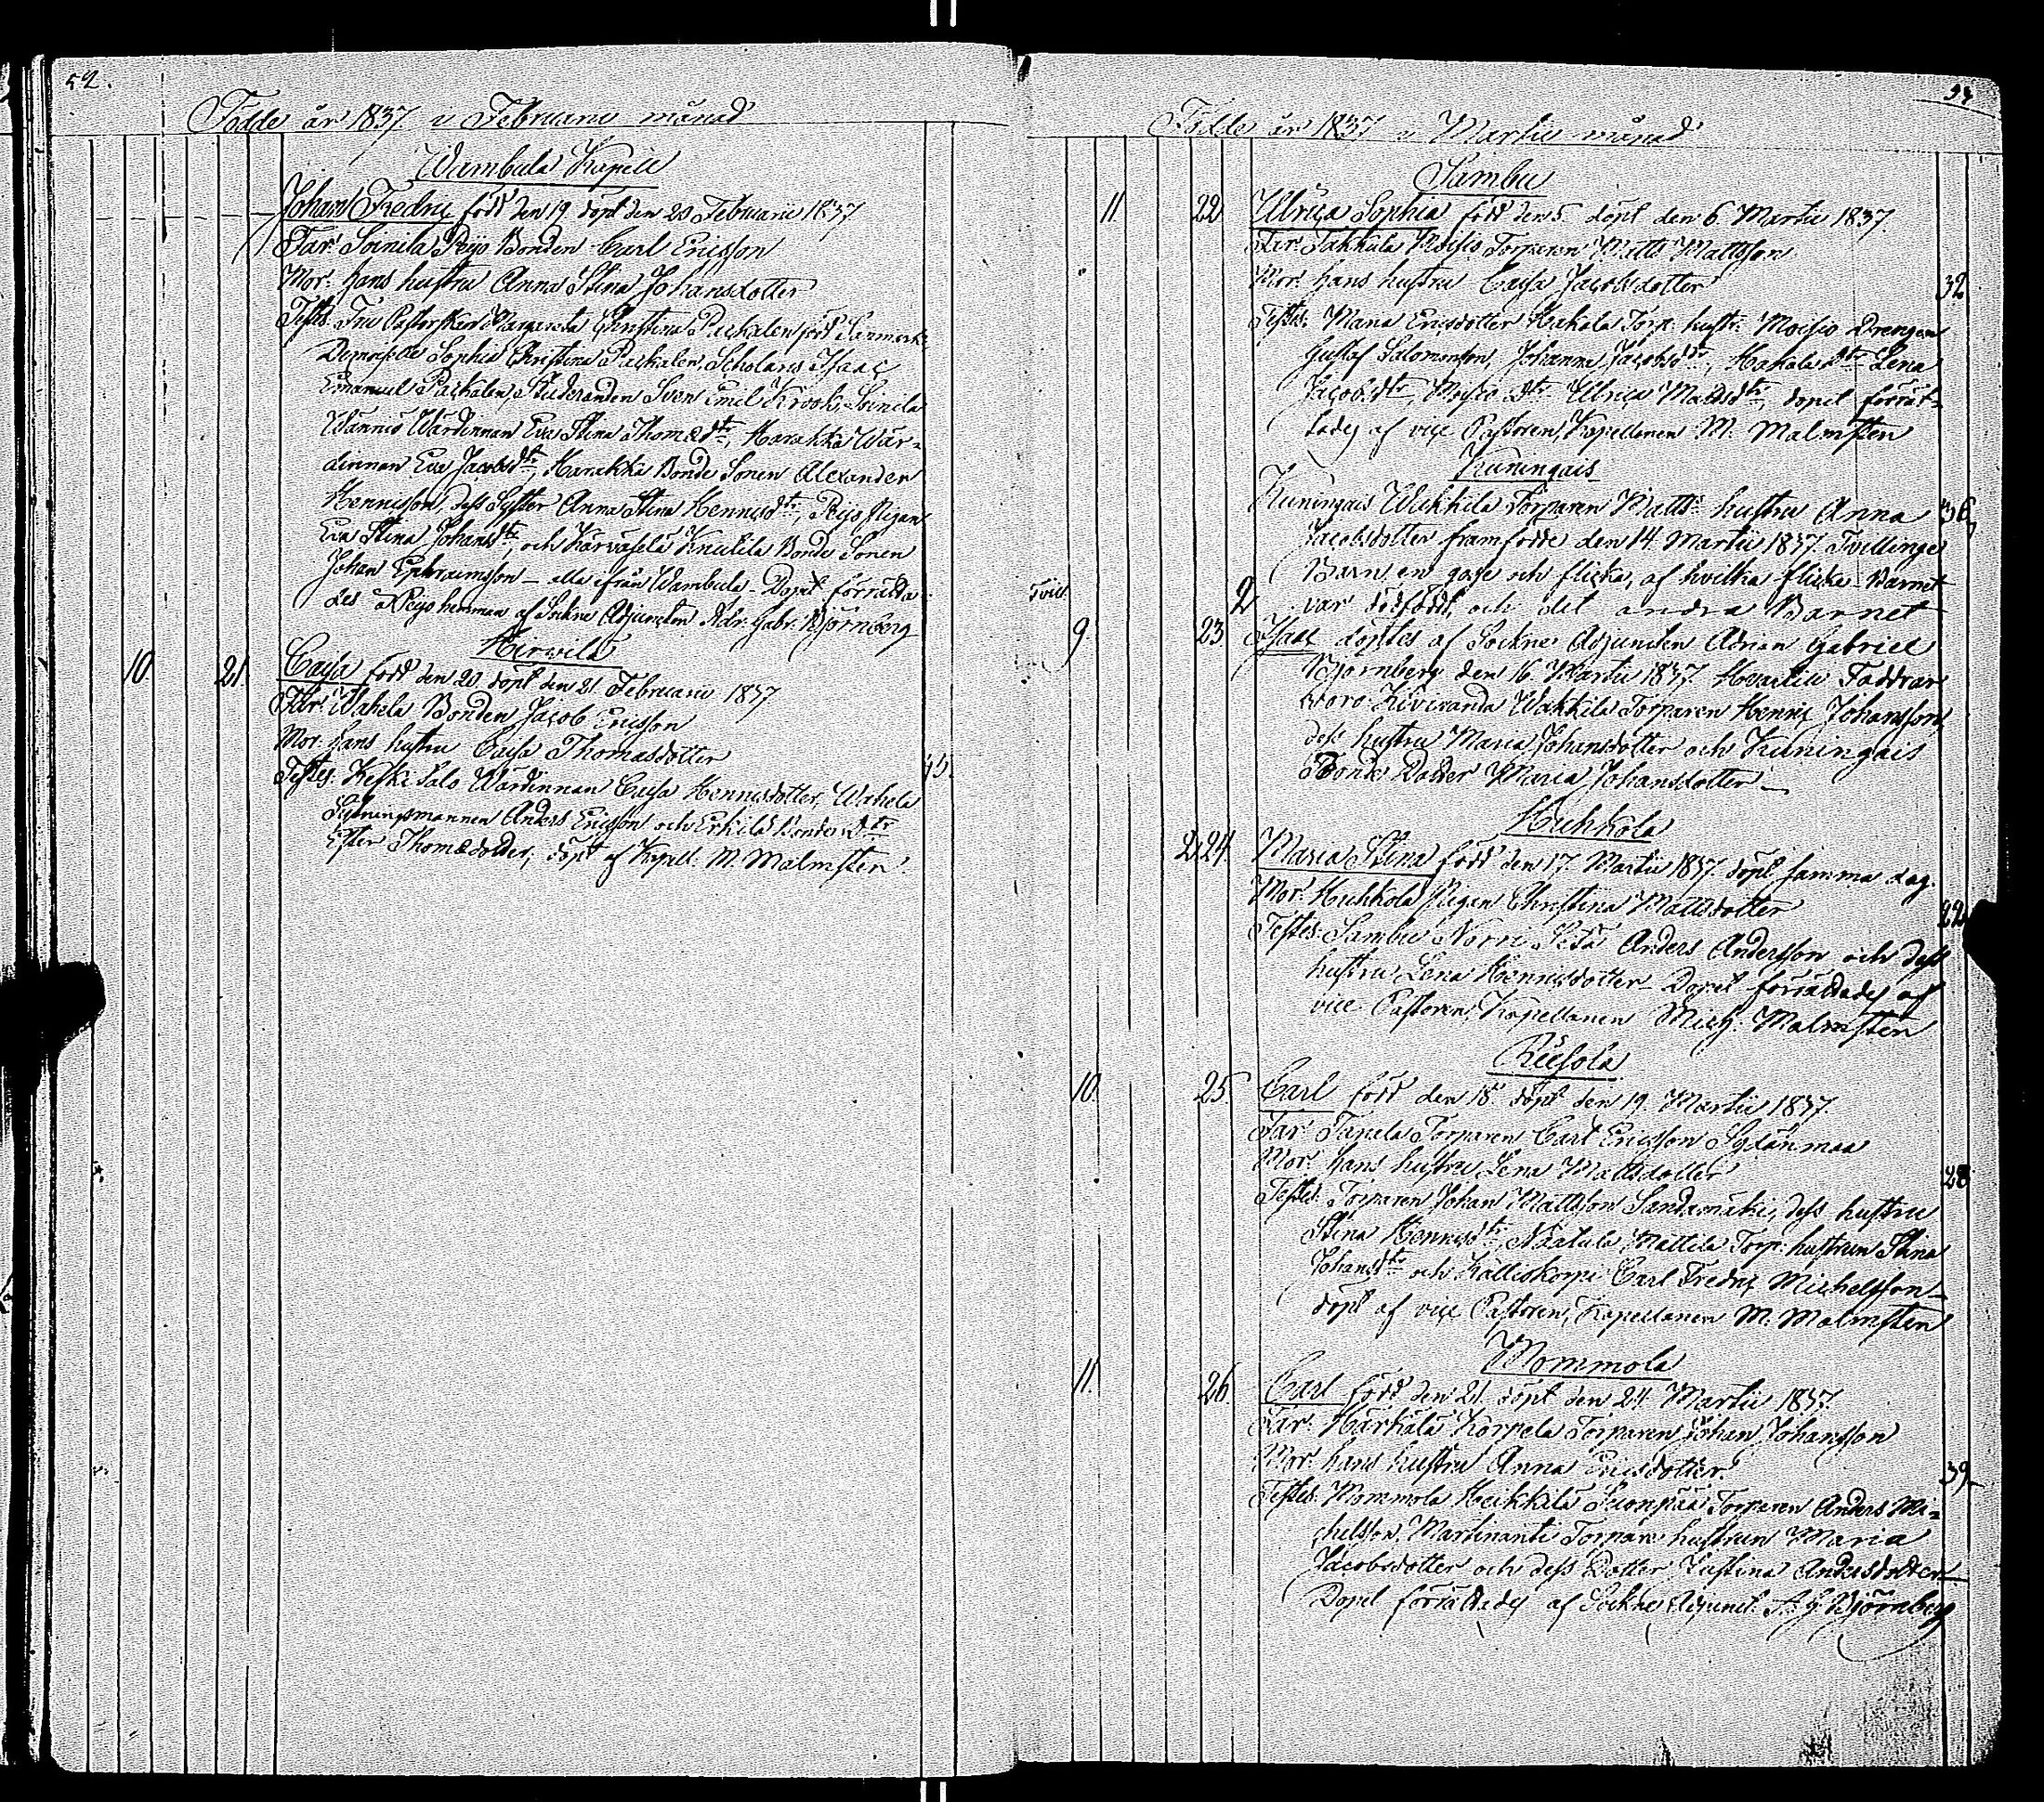 52.
Födde år 1837 i Februarii månad
Wambula Kapell
Johan Fredric född den 19 döpt den 20 Februarii 1837
Far: Soinila Reijo Bonden Carl Ericsson
Mor: hans hustru Anna Stina Johansdotter
Testes: Fru Pastorskan Margareta Christina Pachalen född
Demoiselle Sophia Christina Pachalen, Scholaris Isaac
Emanuel Pachalen, Studeranden Sven Emil Krook, Soinila
Wännilö Wärdinnan Eva Stina Thomædtr, Harakka Wär-
dinnan Eva Jacobsdtr, Harakka Bonde Sonen Alexander
Henricsson, dess Syster Anna Stina Henricsdtr, Reijo Pigan
Eva Stina Johansdtr, och Kärväselä Knuttila Bonde Sonen
Johan Ephraimsson – alla ifrån Wambula – Dopet förrätta-
des å Reijo hemman af Sockne Adjuncten Adr. Gabr. Björnberg
Hirvilä
10. 21. Caisa född den 20 döpt den 21 Februarii 1837
Far: Wahela Bonden Jacob Ericsson
Mor: hans hustru Caisa Thomasdotter
45.
Testes: Keski-Salo Wärdinnan Caisa Henricsdotter, Wahela
Anders Ericsson och Erkilä Bonde Dtr
Ester Thomædotter, döpt af Kapell. M. Malmsten.
53
Födde år 1837 i Martii månad
Sambu
11 22 Ulrica Sophia född den 5 döpt den 6 Martii 1837.
Far: Takkula Moisio Torparen Matts Mattsson
Mor: hans hustru Caisa Jacobsdotter
32
Testes: Maria Ericsdotter Hakala Torp. hustr. Moisio Drengen
Gustaf Salomonsson, Johanna Jacobsdtr, Hakala Dtr Lena
Jacobsdtr, Moisio Dtr Ulrica Mattsdtr, dopet förrät-
tades af vice Pastoren, Kapellanen M. Malmsten
Kuningais
Kuningais Wekkilä Torparen Matts hustru Anna 36
Jacobsdotter framfödde den 14 Martii 1837 Tvillinge
Barn, en gosse och flicka, af hvilka flicke-Barnet
Tvill. 2 var dödfödt, och det andra Barnet
9 23. Isaac döptes af Sockne Adjuncten Adrian Gabriel
Björnberg den 16 Martii 1837. Hvartill Faddrar
woro Kiviranda Wekkilä Torparen Henric Johansson,
dess hustru Maria Johansdotter och Kuningais
Bonde Dotter Maria Johansdotter –
Huhkola
2. 24. Maria Stina född den 17 Martii 1837. döpt samma dag.
Mor: Huhkola Pigan Christina Mattsdotter
22
Testes: Sambu Norri Anders Andersson och dess
hustru Lena Henricsdotter – Dopet förrättades af
vice Pastoren, Kapellanen Mich. Malmsten
Riesola
10. 25. Carl född den 18 döpt den 19. Martii 1837.
Far: Tanela Torparen Carl Ericsson Sydänmaa
Mor: hans hustru Lena Mattsdotter
28
Testes: Torparen Johan Mattsson Sandamäki, dess hustru
Stina Henricsdtr, Naatula Mattila Torp. hustrun Stina
Johansdtr och Kalliokorpi Carl Fredric Michelsson –
döpt af vice Pastoren, Kapellanen M. Malmsten
Mommola
11. 26. Carl född den 21. döpt den 24 Martii 1837.
Far: Härkälä Korpela Torparen Johan Johansson
Mor: hans hustru Anna Ericsdotter.
39
Testes: Mommola Heikkilä Suonpää Torparen Anders Mi-
chelsson, Martinanti Torpare hustrun Maria
Jacobsdotter och dess Dotter Justina Andersdotter
Dopet förrättades af Sockne Adjunct. A. G. Björnberg